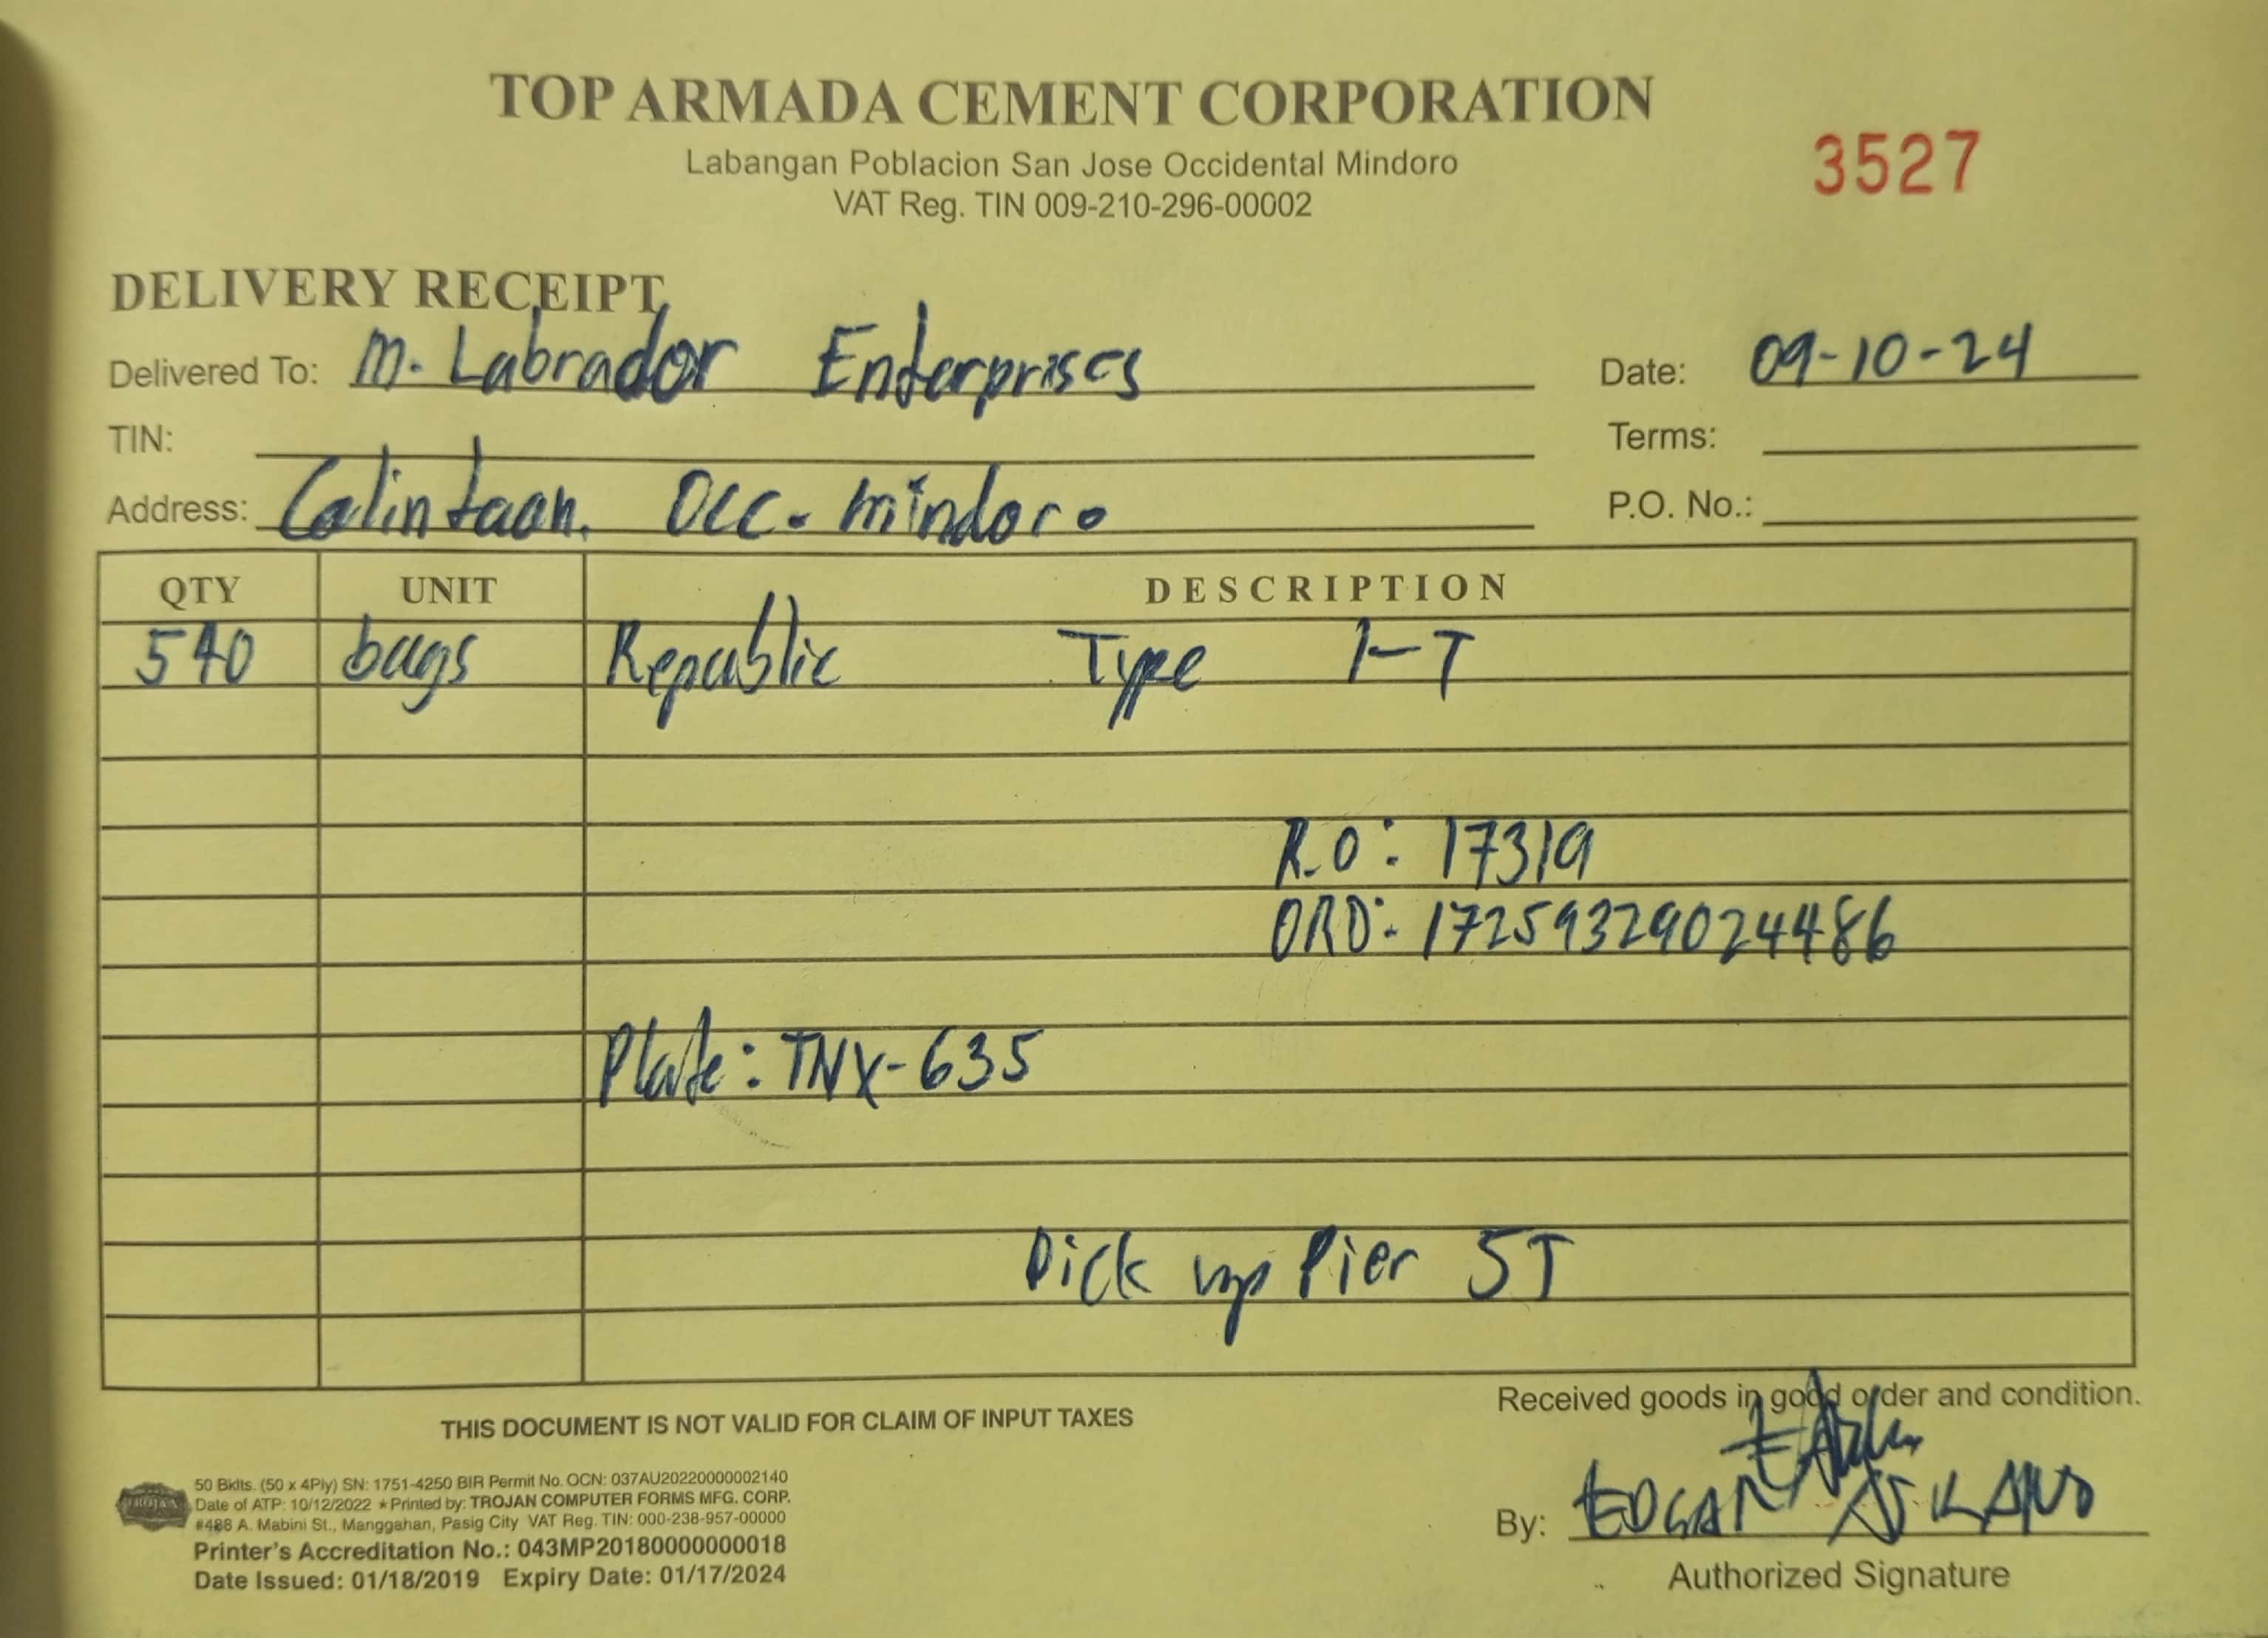 TOP ARMADA CEMENT CORPORATION
Labangan Poblacion San Jose Occidental Mindoro
VAT Reg. TIN 009-210-296-00002
3527
DELIVERY RECEIPT
Delivered To: M. Labrador Enterprises
Date: 09-10-24
TIN:
Terms:
Address: Calintaan. Occ. Mindoro
P.O. No.:
QTY UNIT DESCRIPTION
540 bags Republic Type 1-T
R.O: 17319
ORD: 1725932902 4486
Plate: TNX-635
Pick up Pier 5T
Received goods in good order and condition.
THIS DOCUMENT IS NOT VALID FOR CLAIM OF INPUT TAXES
50 Bklts. (50 x 4Ply) SN: 1751-4250 BIR Permit No. OCN: 037AU20220000002140
TROJAN Date of ATP: 10/12/2022 ★Printed by: TROJAN COMPUTER FORMS MFG. CORP.
#488 A. Mabini St., Manggahan, Pasig City VAT Reg. TIN: 000-238-957-00000
Printer's Accreditation No.: 043MP20180000000018
Date Issued: 01/18/2019 Expiry Date: 01/17/2024
By: EDGAR
Authorized Signature